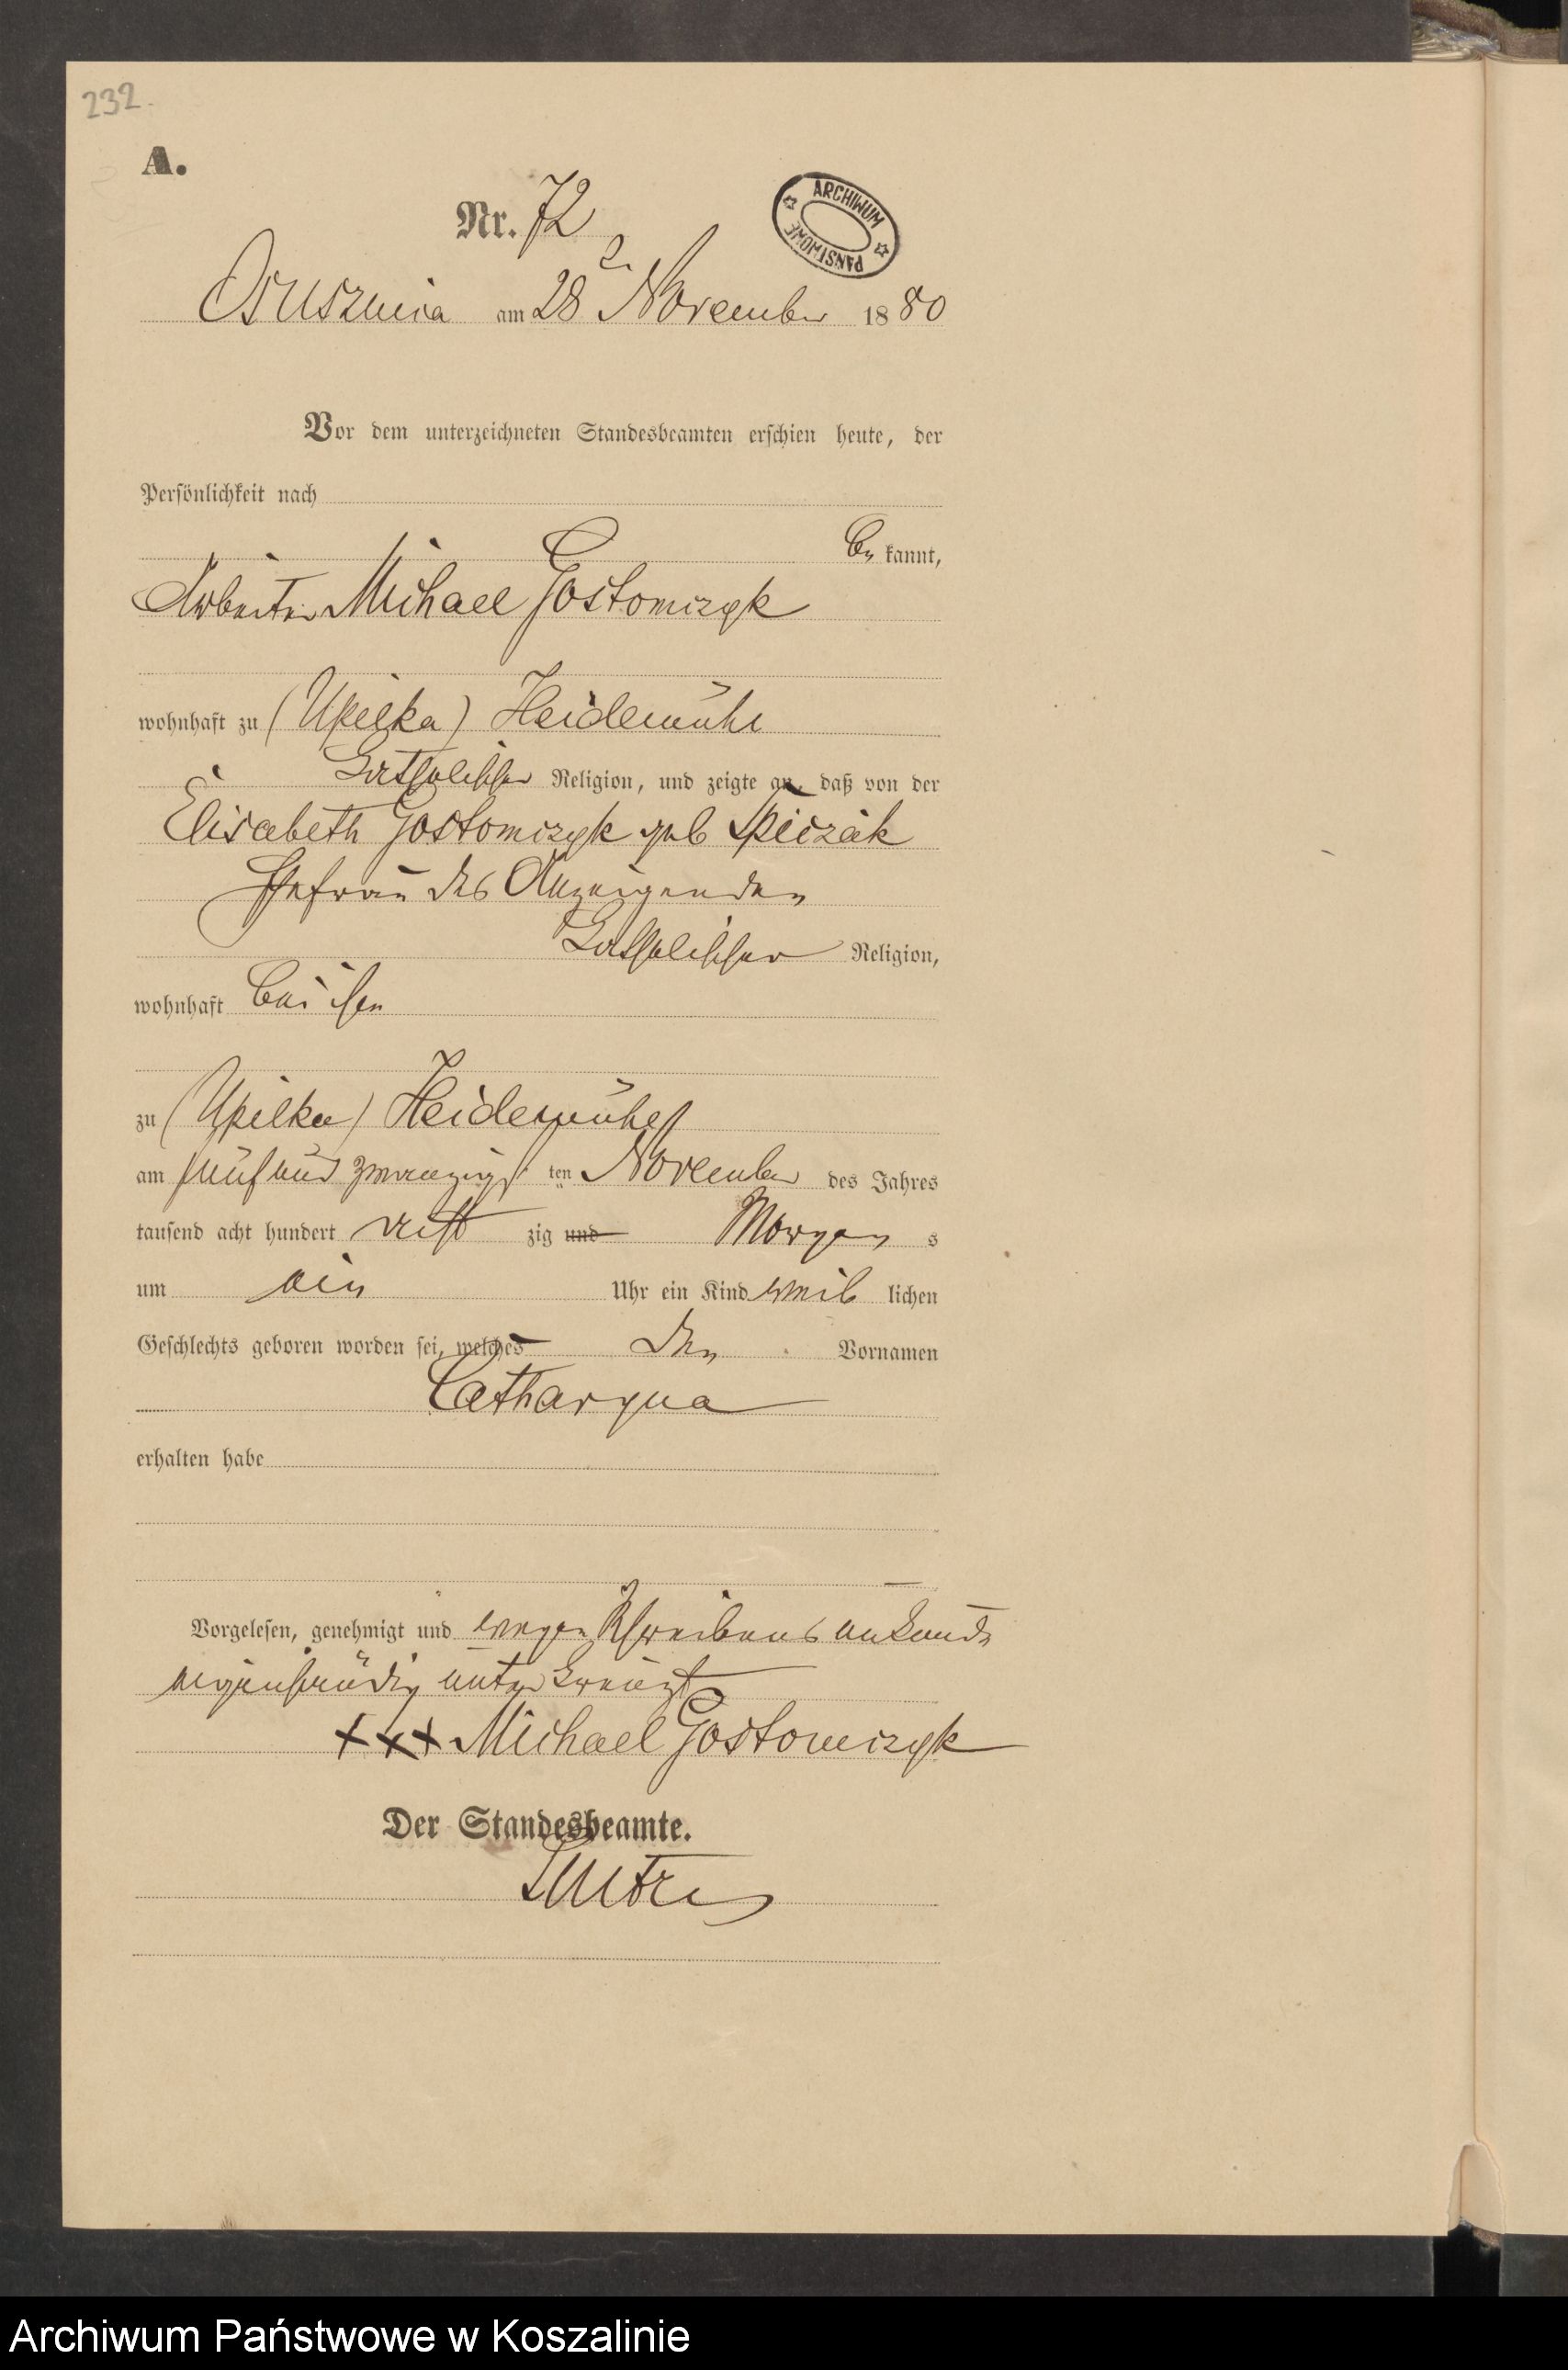 232.
A.
Nr. 72
ARCHIWUM PAŃSTWOWE
Osusznica am 28 November 1880
Vor dem unterzeichneten Standesbeamten erschien heute, der
Persönlichkeit nach
be kannt,
Arbeiter Michael Gostomczyk
wohnhaft zu (Upilka) Heidemühl
katholischer Religion, und zeigte an, daß von der
Elisabeth Gostomczyk geb Spiczak
Ehefrau des Anzeigenden
katholischer Religion,
wohnhaft bei ihm
zu (Upilka) Heidemühl
am fünf und zwanzigsten November des Jahres
tausend acht hundert acht zig und Morgen s
um ein Uhr ein Kind weib lichen
Geschlechts geboren worden sei, welches den Vornamen
Catharyna
erhalten habe
Vorgelesen, genehmigt und wegen Schreibensunkunde
eigenhändig unterkreuzt
+++ Michael Gostomczyk
Der Standesbeamte.
Archiwum Państwowe w Koszalinie